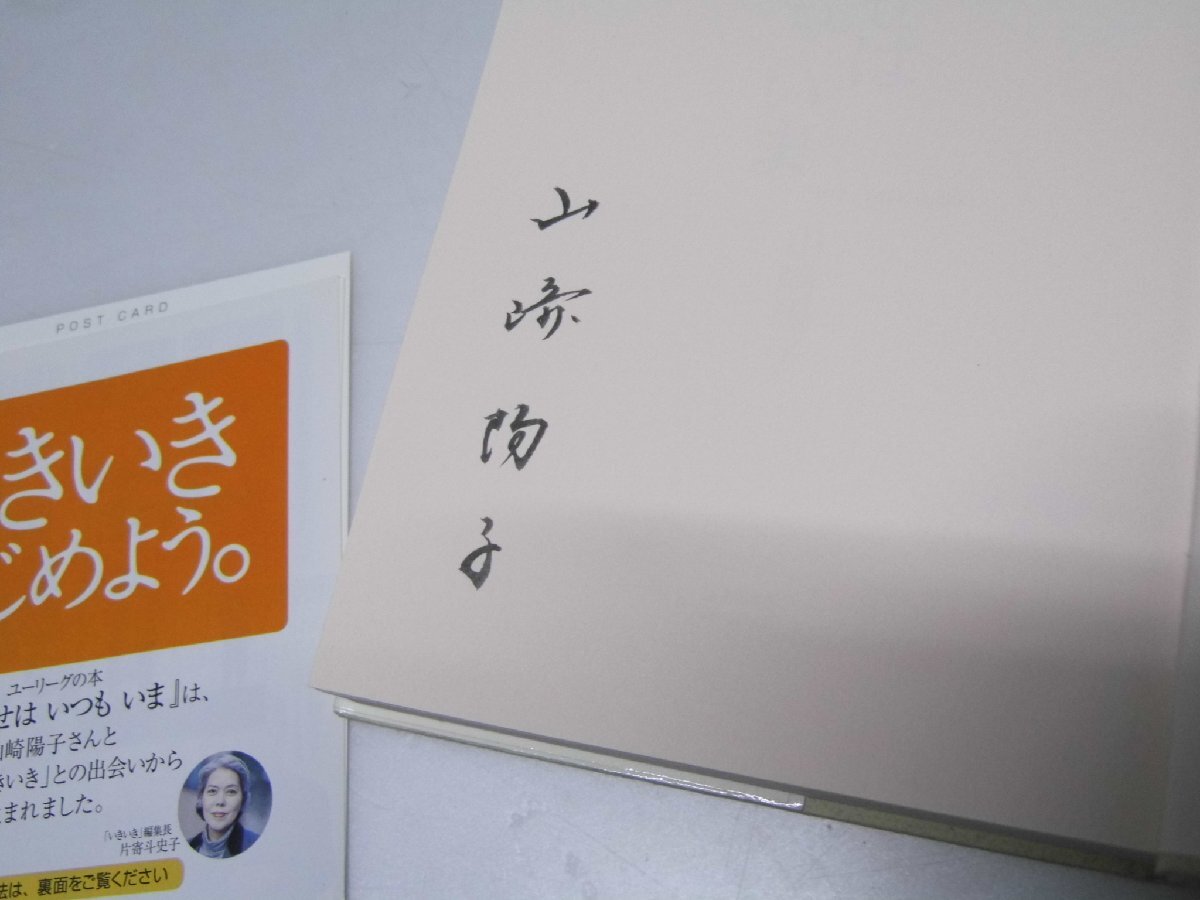 山崎陽子
POST CARD
きいき
じめよう。
ユーリーグの本
せは いつも いま』は、
山崎陽子さんと
きいき」との出会いから
まれました。
「いきいき」編集長
片寄斗史子
法は、裏面をご覧ください